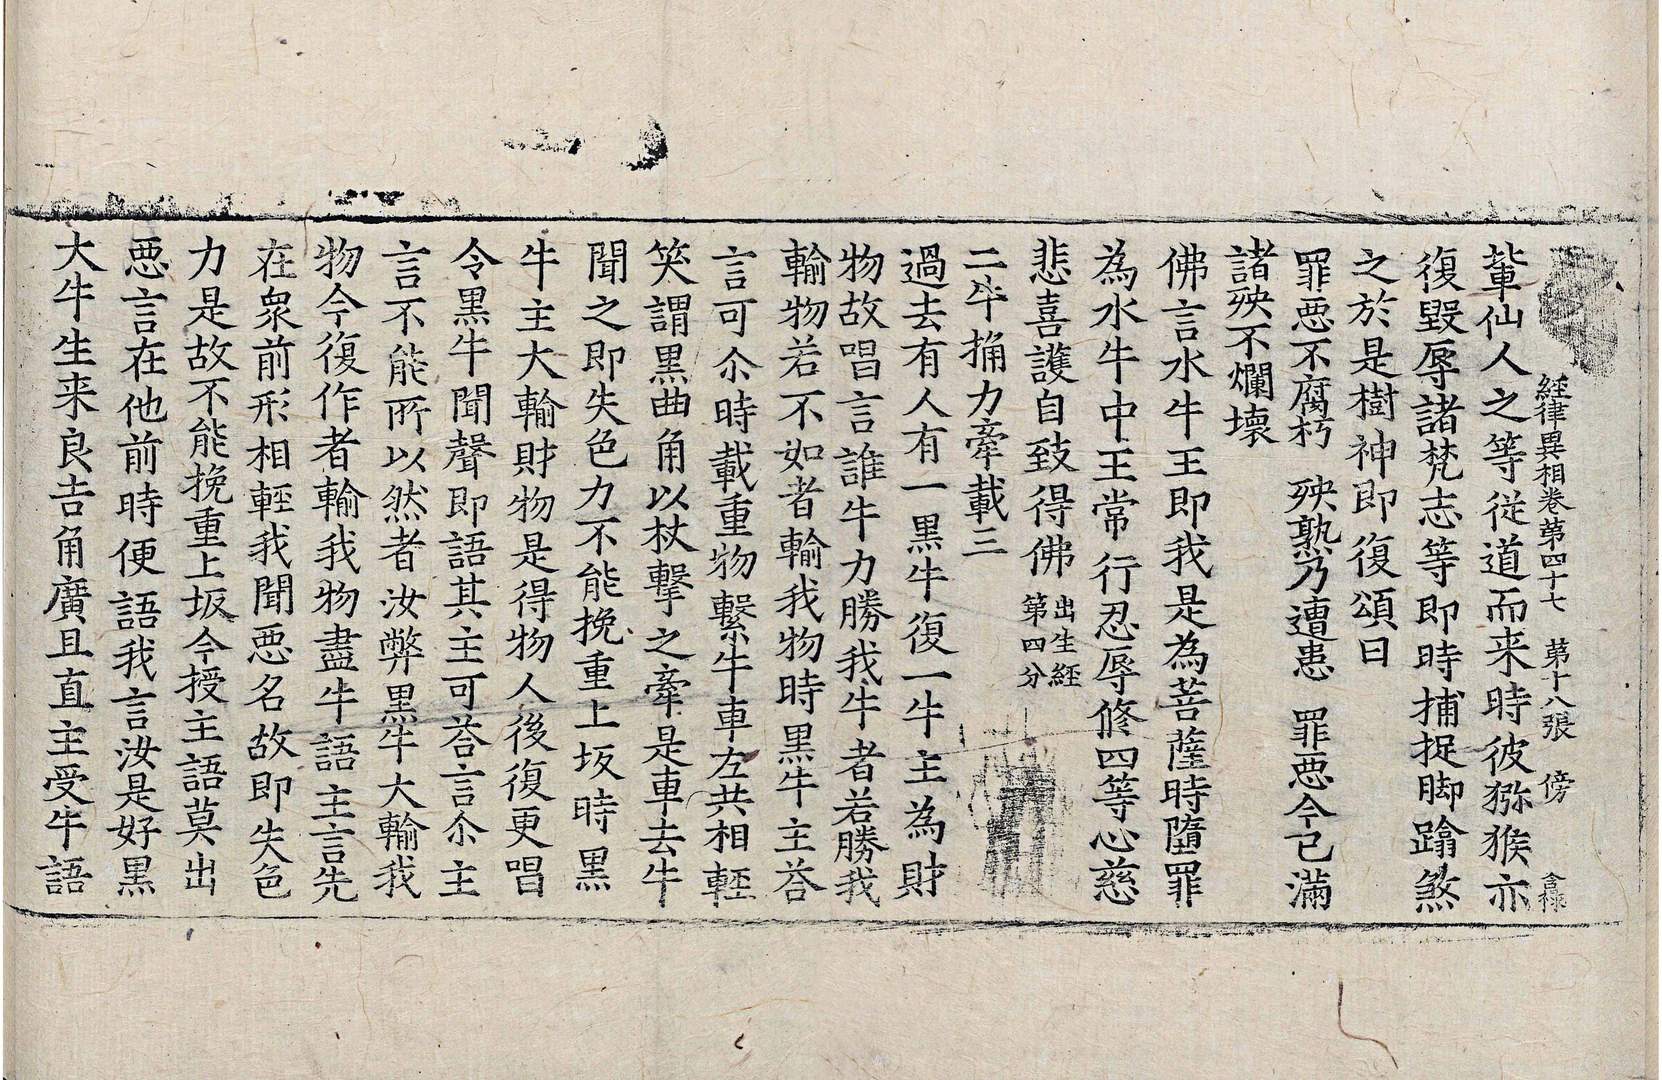 經律異相卷第四十七 第十八張 傍 㒰祿
輩仙人之等従道而来時彼猕猴亦
復毀辱諸梵志等即時捕捉脚蹹煞
之於是樹神即復頌曰
罪惡不腐朽 殃熟乃遭患 罪惡今已滿
諸殃不爛壞
佛言水牛王即我是為菩薩時墮罪
為水牛中王常行忍辱修四等心慈
悲喜護自致得佛 出生經第四分
二牛捔力牽載三
過去有人有一黑牛復一牛主為財
物故唱言誰牛力勝我牛者若勝我
輸物若不如者輸我物時黑牛主荅
言可尒時載重物繫牛車左共相輕
笑謂黑曲角以杖擊之牽是車去牛
聞之即失色力不能挽重上坂時黑
牛主大輸財物是得物人後復更唱
令黑牛聞聲即語其主可荅言尒主
言不能所以然者汝弊黑牛大輸我
物今復作者輸我物盡牛語主言先
在衆前形相輕我聞惡名故即失色
力是故不能挽重上坂今授主語莫出
惡言在他前時便語我言汝是好黑
大牛生来良吉角廣且直主受牛語